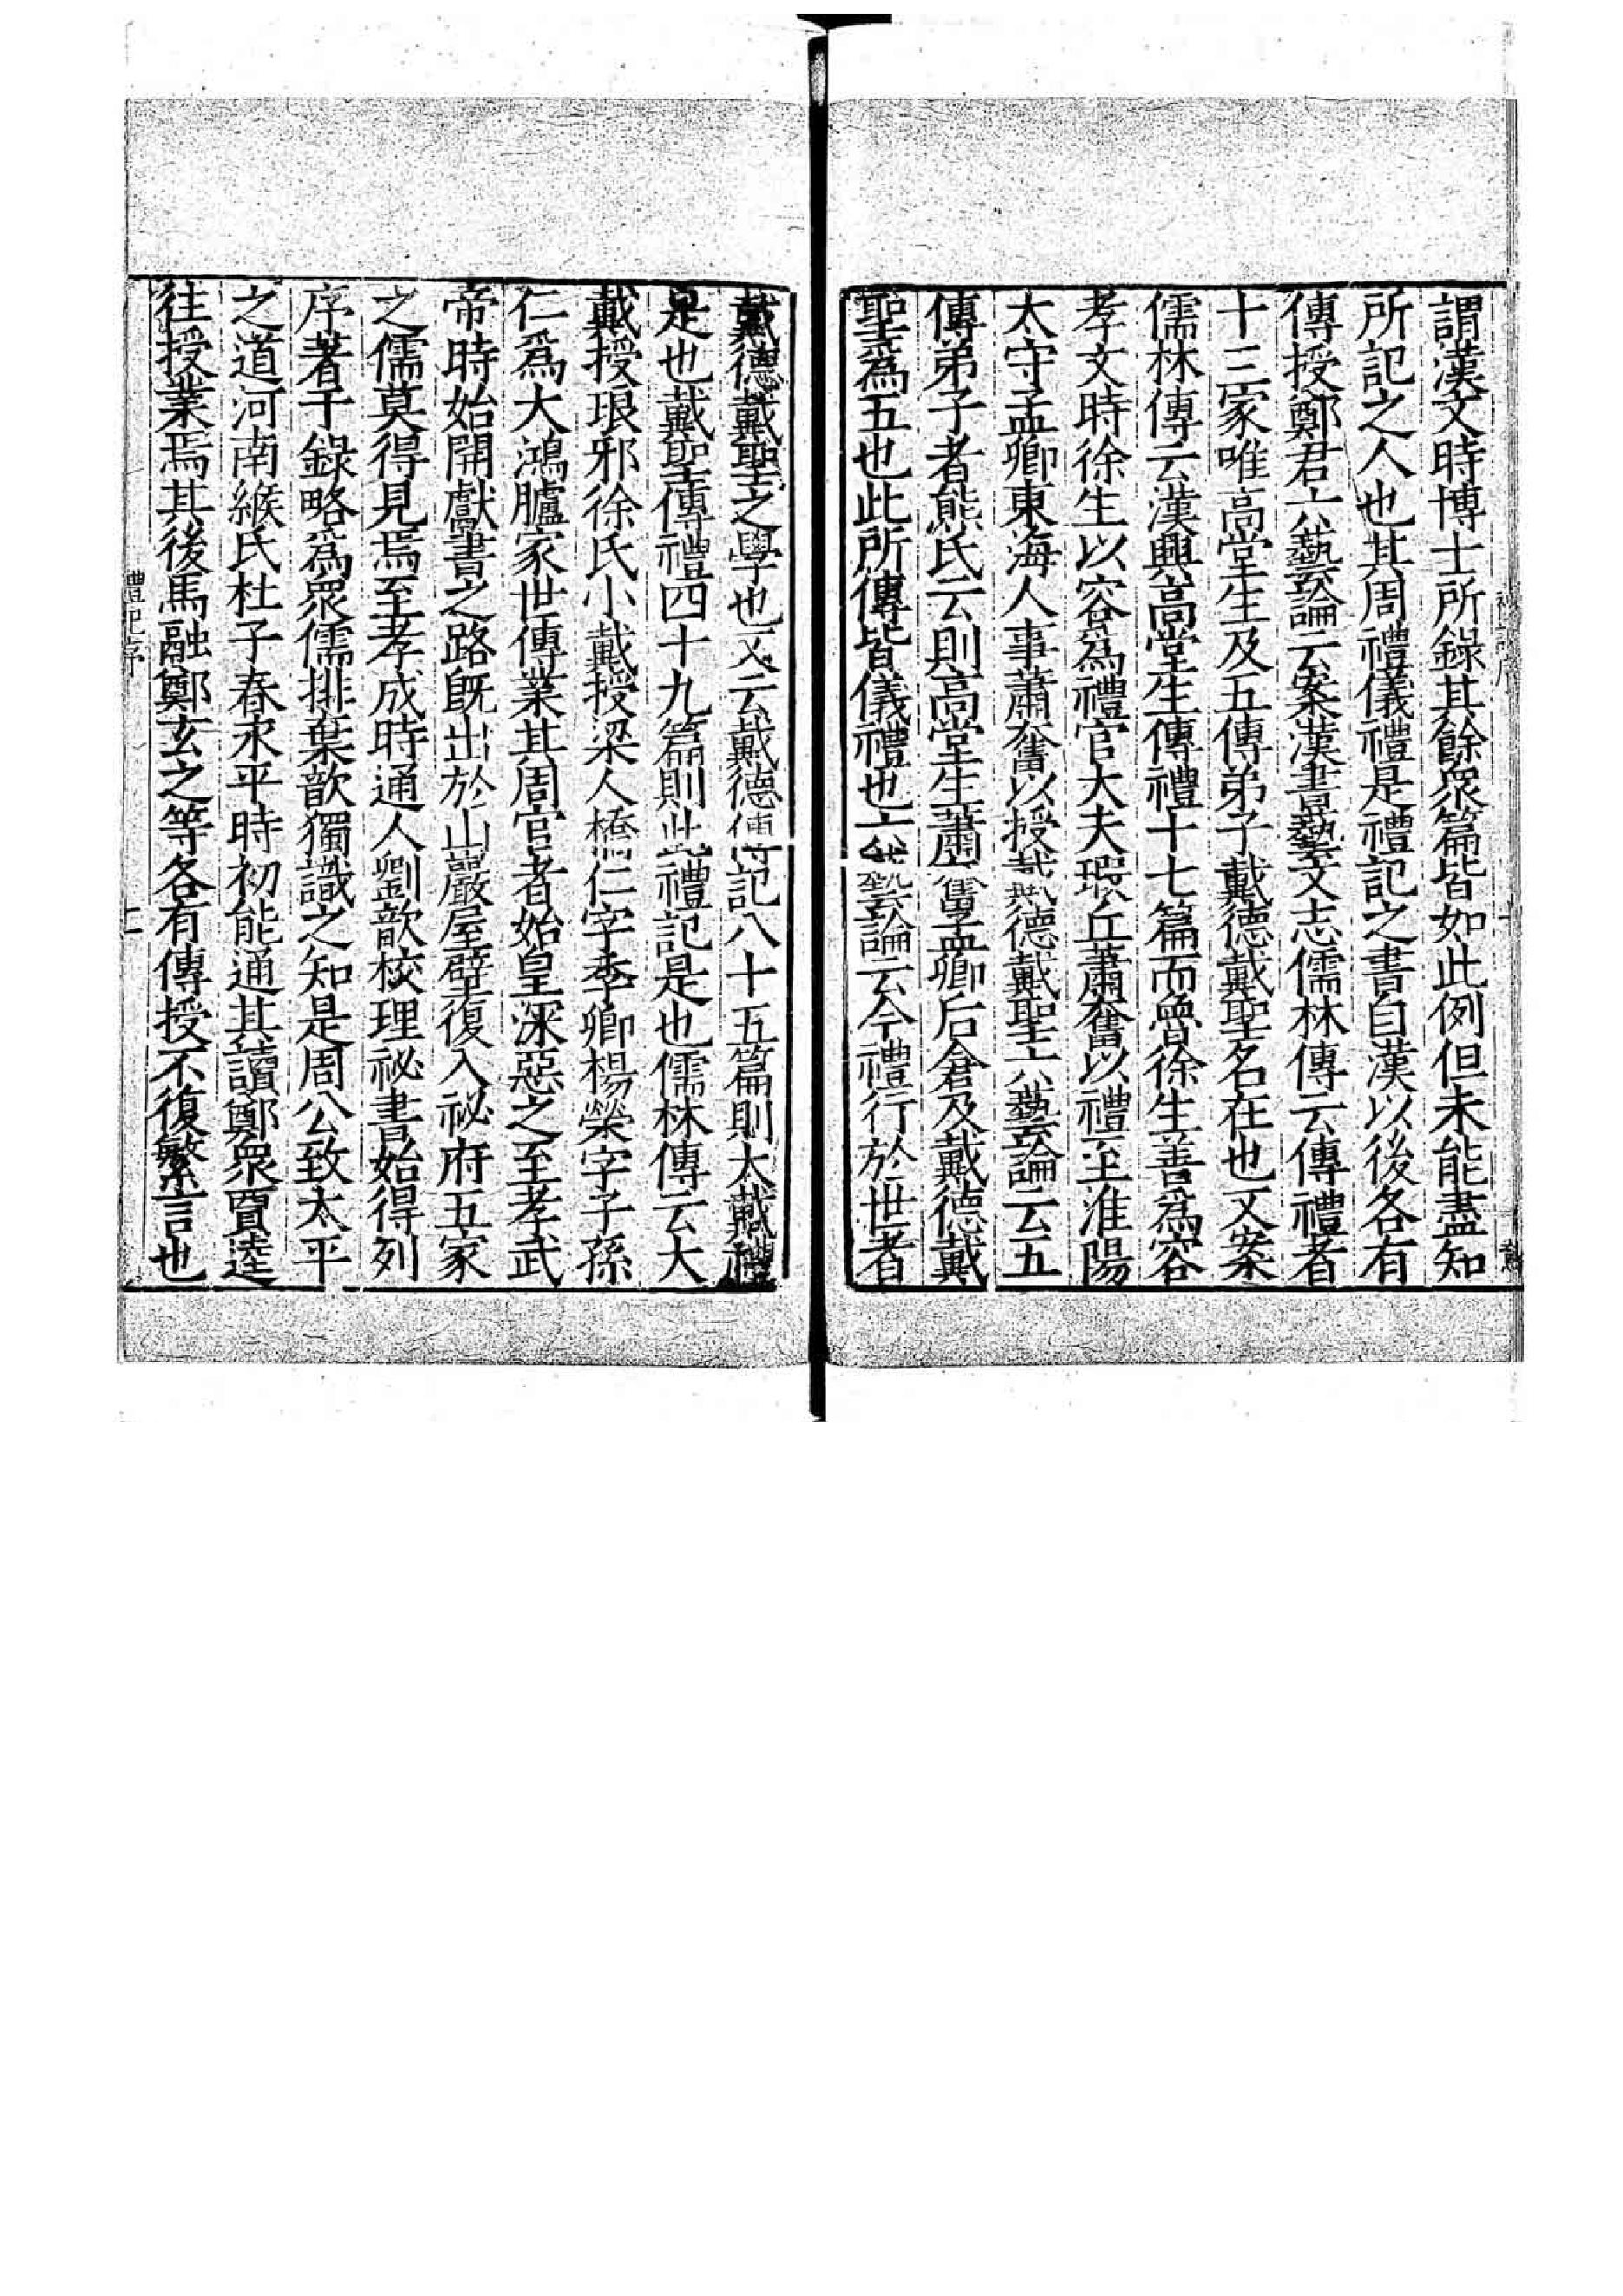 謂漢文時博士所錄其餘衆篇皆如此例但未能盡知
所記之人也其周禮儀禮是禮記之書自漢以後各有
傳授鄭君六藝論云案漢書藝文志儒林傳云傳禮者
十三家唯高堂生及五傳弟子戴德戴聖名在也又案
儒林傳云漢興高堂生傳禮十七篇而魯徐生善爲容
孝文時徐生以容爲禮官大夫瑕丘蕭奮以禮至淮陽
太守孟卿東海人事蕭奮以授戴德戴聖六藝論云五
傳弟子者熊氏云則高堂生蕭奮孟卿后倉及戴德戴
聖爲五也此所傳皆儀禮也六藝論云今禮行於世者
戴德戴聖之學也又云戴德傳記八十五篇則大戴禮
是也戴聖傳禮四十九篇則此禮記是也儒林傳云大
戴授琅邪徐氏小戴授梁人橋仁字季卿楊榮字子孫
仁爲大鴻臚家世傳業其周官者始皇深惡之至孝武
帝時始開獻書之路旣出於山巖屋壁復入祕府五家
之儒莫得見焉至孝成時通人劉歆校理祕書始得列
序著于錄略爲衆儒排棄歆獨識之知是周公致太平
之道河南緱氏杜子春永平時初能通其讀鄭衆賈逵
往授業焉其後馬融鄭玄之等各有傳授不復繁言也
禮記序
二